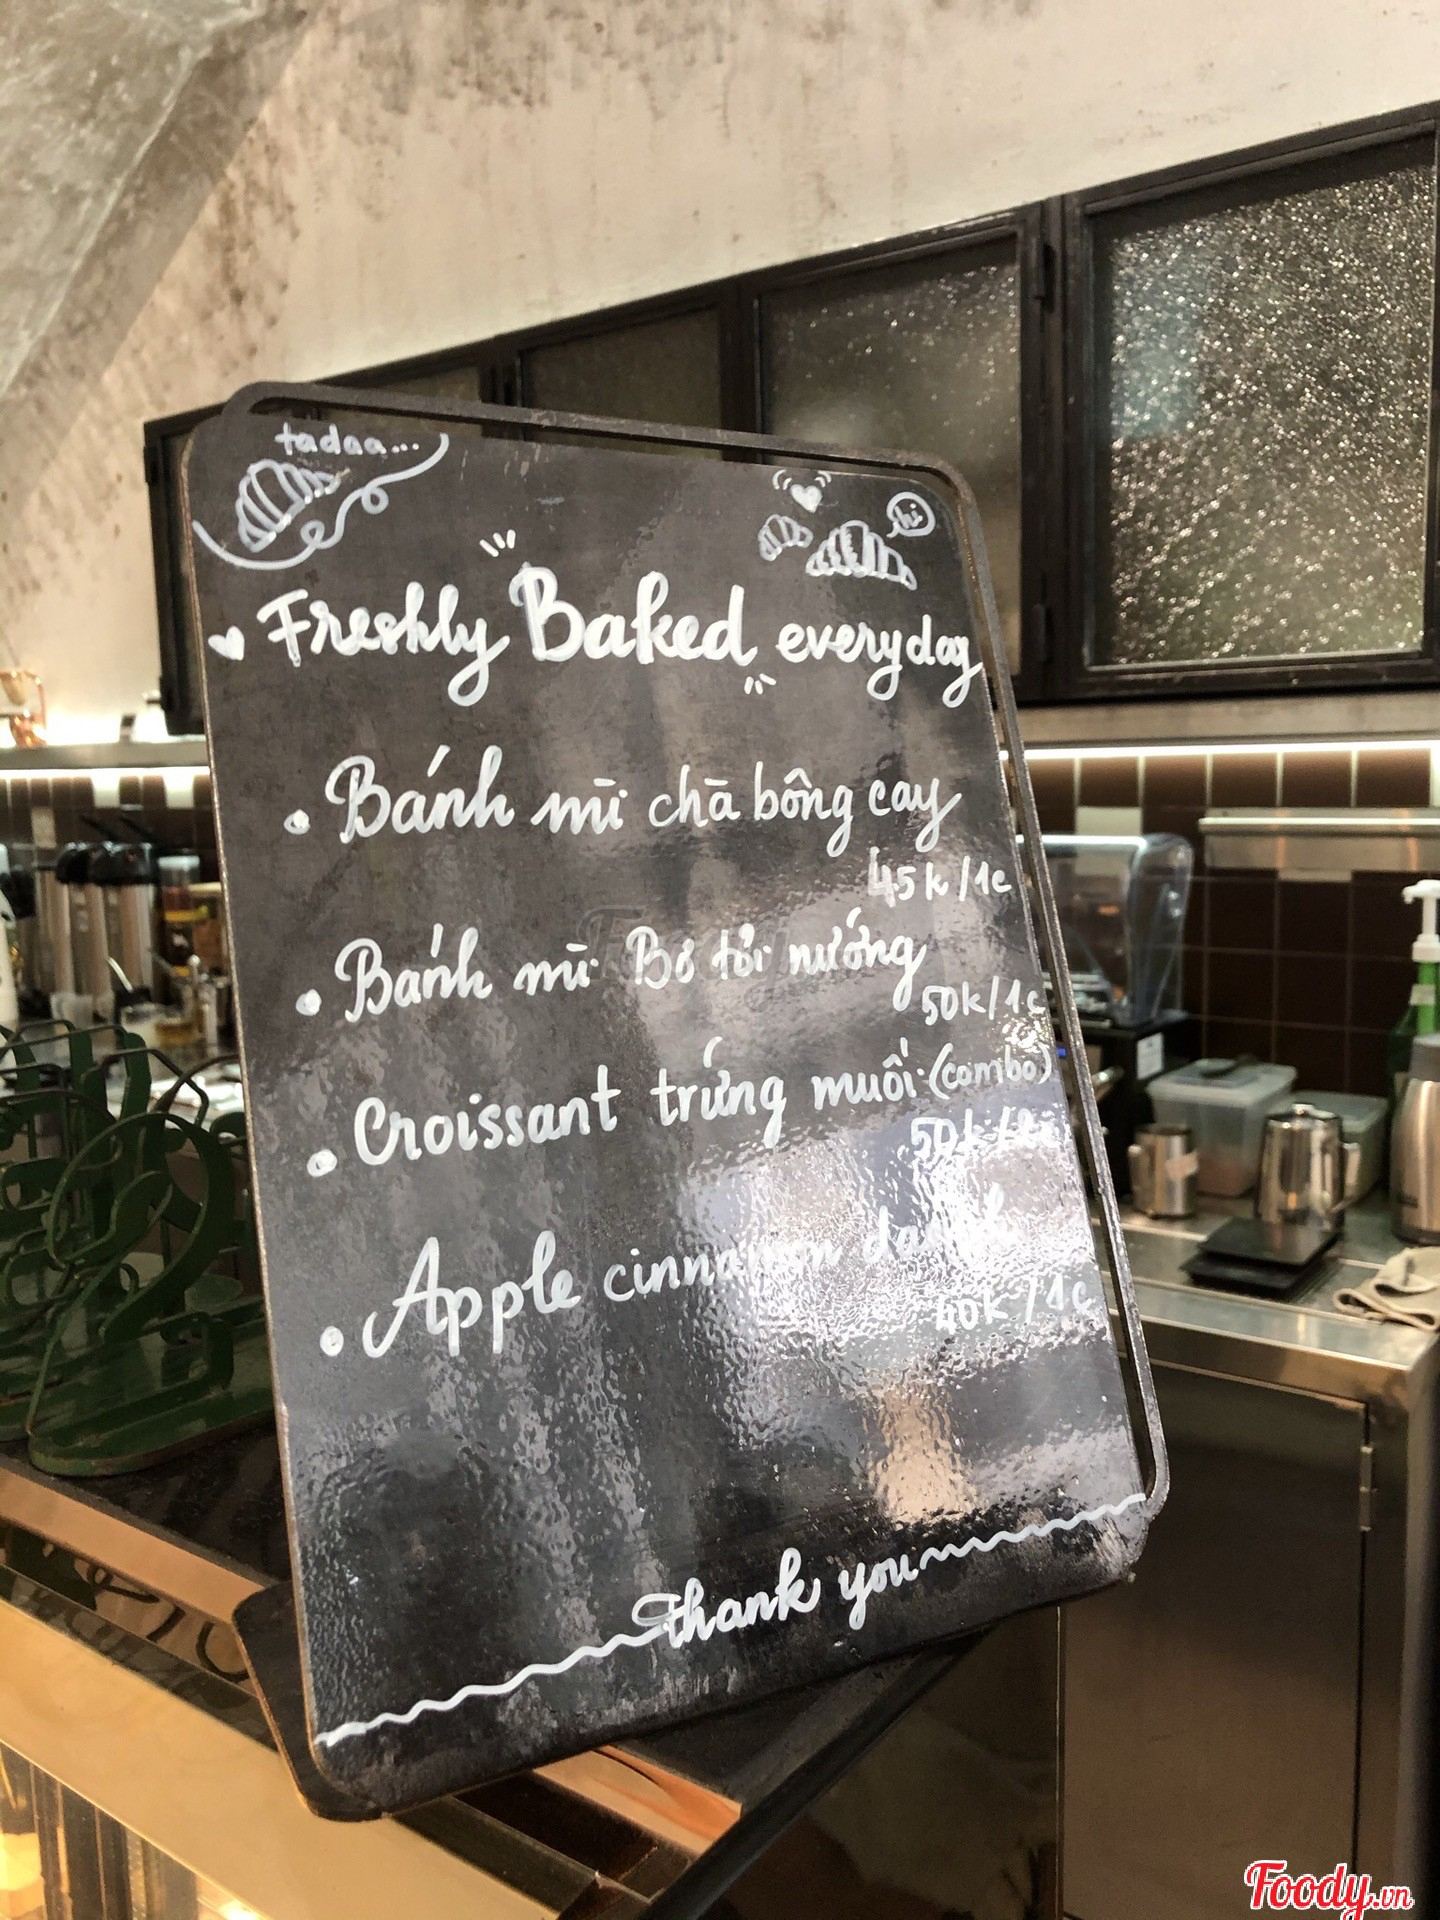 tadaa...
hi
Freshly Baked everyday
Bánh mì chà bông cay
45k/1c
Bánh mì Bơ tỏi nướng
50k/1c
Croissant trứng muối (combo)
50k/2c
Apple cinnamon danish
40k/1c
Thank you
Foody.vn